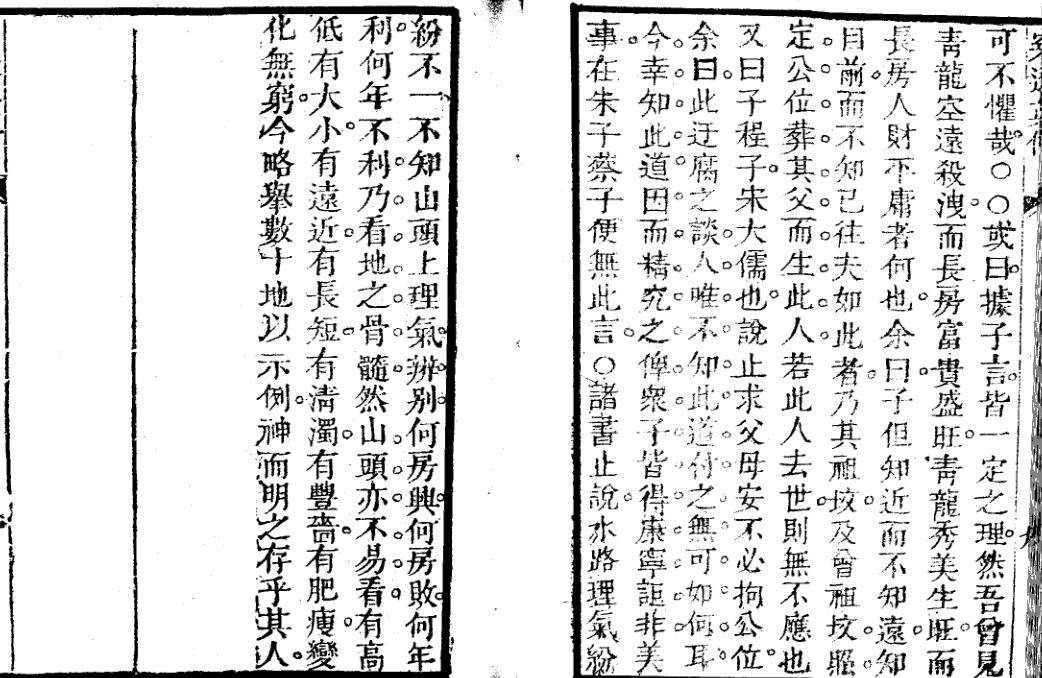 可不懼哉○○或曰據子言皆一定之理然吾曾見
靑龍空遠殺洩而長房富貴盛旺靑龍秀美生旺而
長房人財不庸者何也余曰子但知近而不知遠知
目前而不知已往夫如此者乃其祖坟及曾祖坟照
定公位葬其父而生此人若此人去世則無不應也
又曰子程子宋大儒也說止求父母安不必拘公位
余曰此迂腐之談人唯不知此道付之無可如何耳
今幸知此道因而精究之俾衆子皆得康寧詎非美
事在朱子蔡子便無此言○諸書止說水路理氣紛
紛不一不知山頭上理氣辦别何房興何房敗何年
利何年不利乃看地之骨髓然山頭亦不易看有高
低有大小有遠近有長短有淸濁有豐嗇有肥瘦變
化無窮今略舉數十地以示例神而明之存乎其人